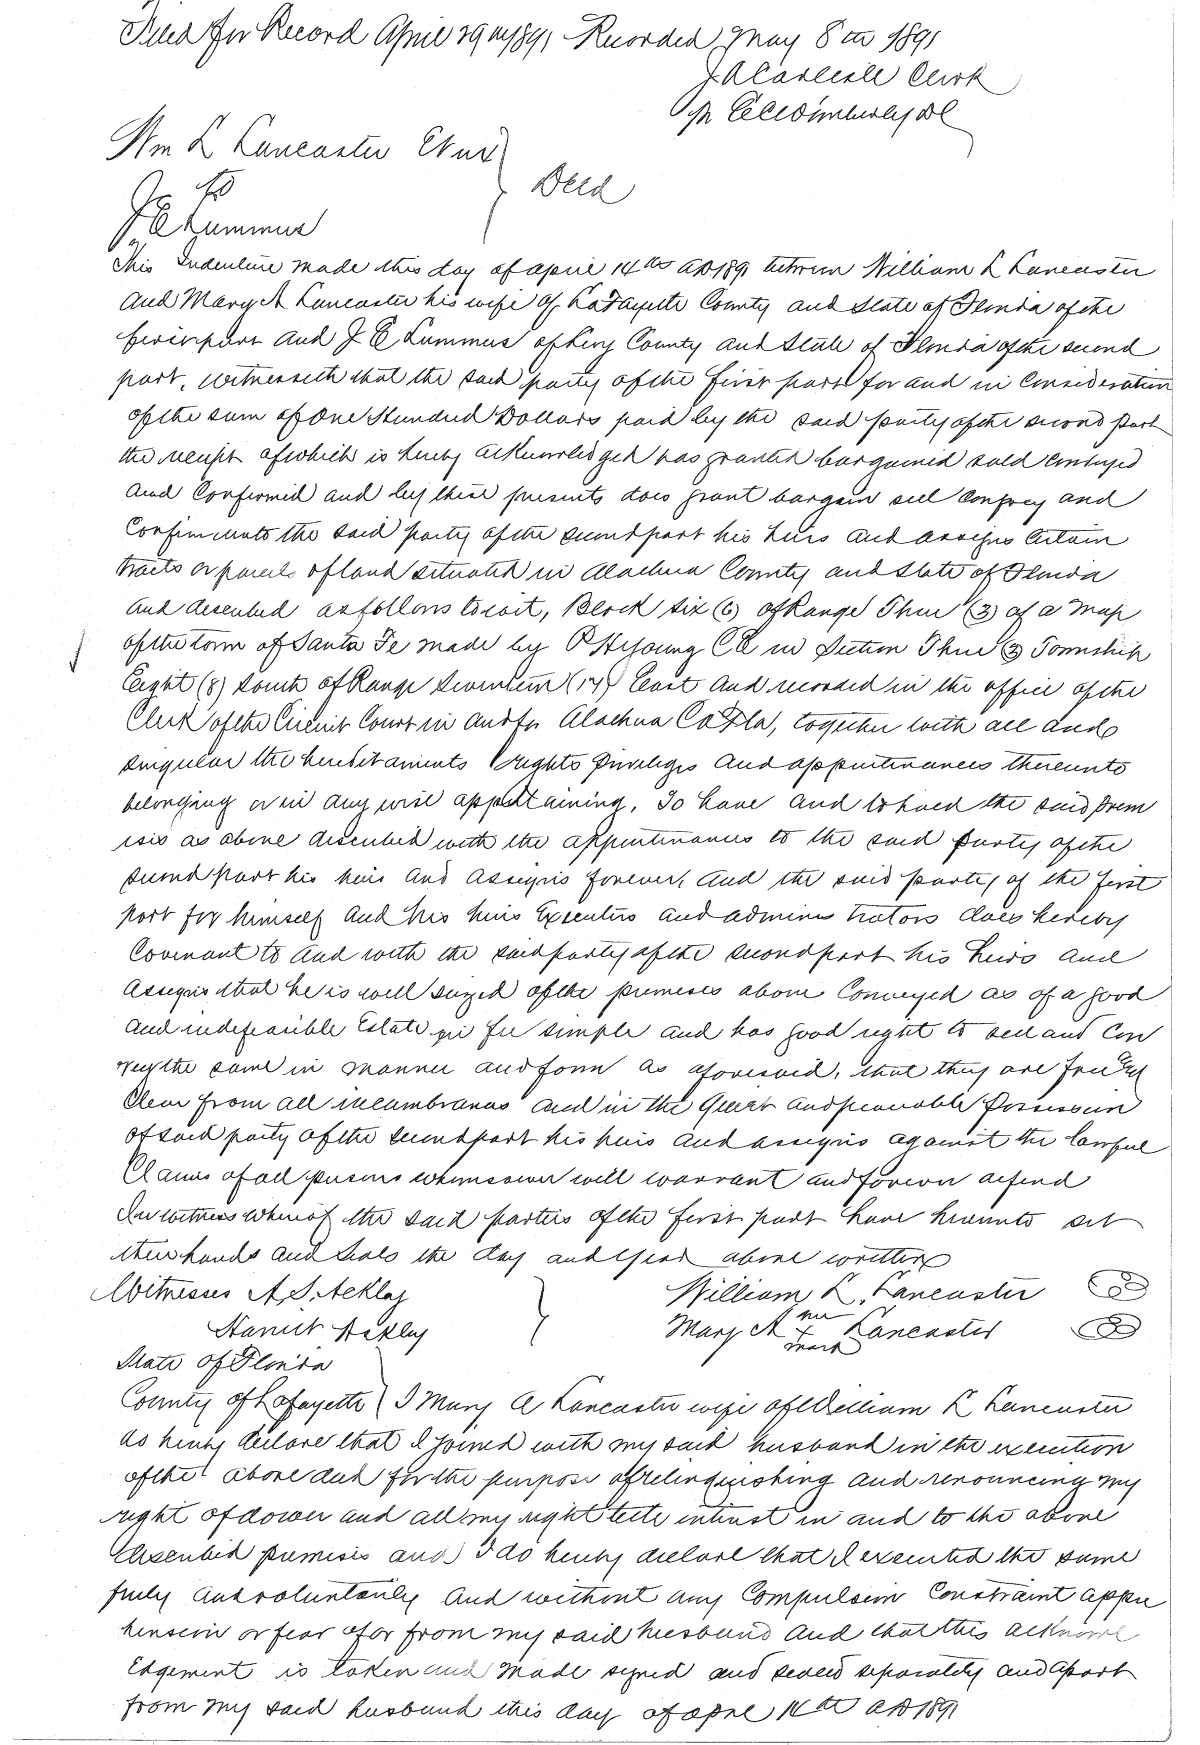 Filed for Record April 29th 1891 Recorded May 8th 1891
J A Carlisle Clerk
pr C C Wimberley DC
Wm L Lancaster Et ux
to
Deed
J E Lummus
This Indenture made this day of april 14th AD 1891 between William L Lancaster
and Mary A Lancaster his wife of LaFayette County and State of Florida of the
first part and J E Lummus of Levy County and State of Florida of the second
part, witnesseth that the said party of the first part for and in consideration
of the sum of One Hundred Dollars paid by the said party of the second part
the receipt of which is hereby acknowledged has granted bargained sold conveyed
and confirmed and by these presents does grant bargain sell convey and
confirm unto the said party of the second part his heirs and assigns certain
tracts or parcels of land situated in Alachua County and State of Florida
and described as follows to wit, Block six (6) of Range Three (3) of a map
of the town of Santa Fe made by P H Young C E in Section Three (3) Township
Eight (8) South of Range Seventeen (17) East and recorded in the office of the
Clerk of the Circuit Court in and for Alachua Co Fla, together with all and
singular the hereditaments rights priveliges and appurtenances thereunto
belonging or in any wise appertaining, To have and to hold the said prem
ises as above described with the appurtenances to the said party of the
second part his heirs and assigns forever, and the said party of the first
part for himself and his heirs Executors and administrators does hereby
Covenant to and with the said party of the second part his heirs and
Assigns that he is well seized of the premises above conveyed as of a good
and indefeasible Estate in fee simple and has good right to sell and con
vey the same in manner and form as aforesaid, that they are free &
clear from all incumbrances and in the quiet and peaceable possession
of said party of the second part his heirs and assigns against the lawful
Claims of all persons whomsoever will warrant and forever defend
In witness whereof the said parties of the first part have hereunto set
their hands and seals the day and year above written
Witnesses A. S. Ackley
William L. Lancaster
Harriet Ackley
Mary A her x mark Lancaster
State of Florida
County of Lafayette I Mary A Lancaster wife of William L Lancaster
do hereby declare that I joined with my said husband in the execution
of the above deed for the purpose of relinquishing and renouncing my
right of dower and all my right title intrest in and to the above
described premises and I do hereby declare that I executed the same
freely and voluntarily and without any compulsion constraint appre
hension or fear of or from my said husband and that this acknowl
edgement is taken and made signed and sealed separately and apart
from my said husband this day of aprl 14th AD 1891